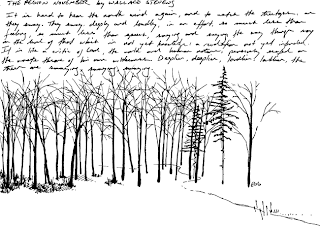 THE REGION NOVEMBER BY WALLACE STEVENS
It is hard to hear the north wind again, and to watch the treetops, as
they sway. They sway, deeply and loudly, in an effort, so much less than
feeling, so much less than speech, saying and saying, the way things say
on the level of that which is not yet knowledge: a revelation not yet intended.
It is like a critic of God, the world and human nature, pensively seated on
the waste throne of his own wilderness. Deeplier, deeplier, loudlier, loudlier, the
trees are swaying, swaying, swaying.